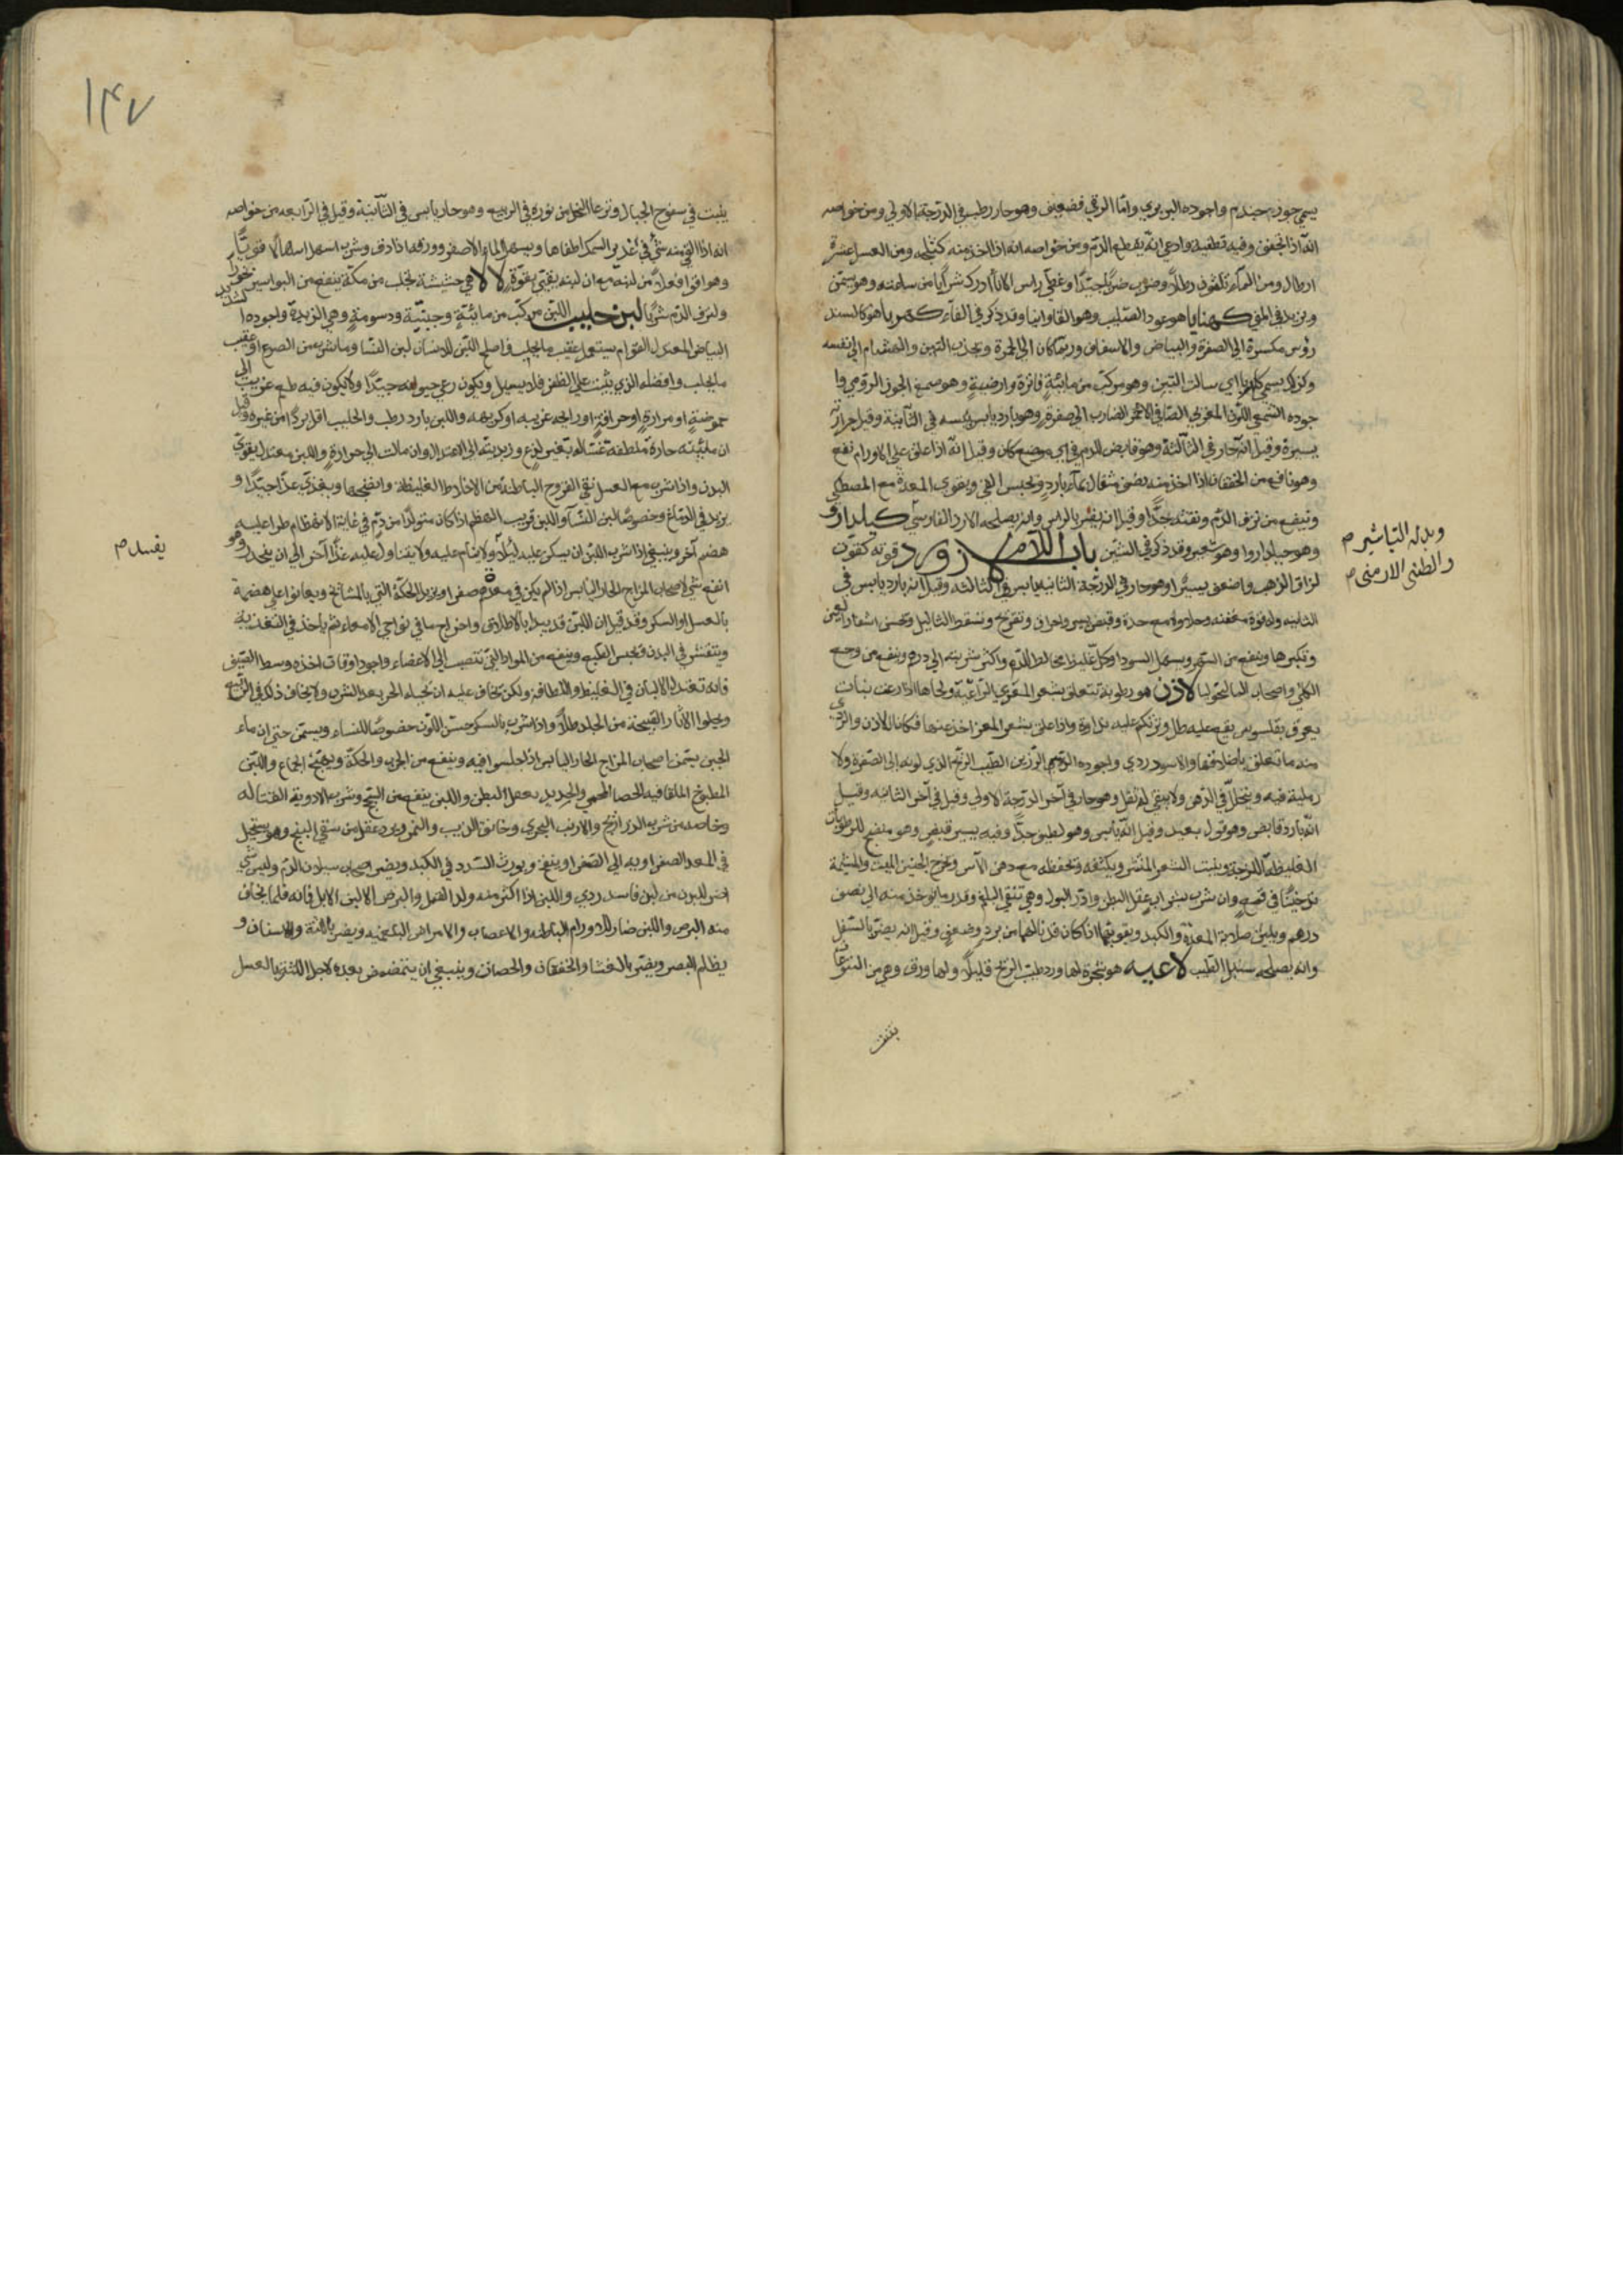 يسمي جوز جندم واجوده البربري وامّا الرقي فضعيف وهو حار رطب في الدرجة الاولي ومن خواصه
انّه اذا جفف وفيه تطفية وادعي انّه يقطع الدّم ومن خواصه انه اذا اخذ منه كيلجه ومن العسل عشرة
ارطال ومن المآء ثلثون رطلاً وضرب ضربًا جيّدًا وغطّي راس الاناء ادرك شرابًا من ساعته وهو يسمّن
ويزيد في المني كهنايا هو عود الصّليب وهو الفاوانيا وقد ذكر في الفآء كهربا هو كالسندروس
مكسره الي الصفرة والبياض والاسفاف وربّما كان الي الحمرة ويجذب التبن والهشيم الي نفسه
وكذلك يسمي كاه ربا اي سالب التبن وهو مركّب من مائيّةٍ فاترة وارضيةٍ وهو صمغ الجوز الرّومي وا
جوده الشمعي اللّون المغربي الصّافي الاحمر الضارب الي صفرةٍ وهو بارد يابس يبسه في الثّانية وقيل حرارته
يسيرة وقيل انّه حار في الثّالثة وهو قابض للدم من اي موضع كان وقيل انّه اذا علق علي الاورام نفع
وهو نافع من الخفقان اذا اخذ منه نصف مثقال بمآء باردٍ ويحبس القي ويقوي المعدة مع المصطكي
وينفع من نزف الدّم ونفثه جدًّا وقيل انه يضر بالراس وانه يصلحه الارد الفارسي كيلدارو
وهو جيلدارو وهو شعير وقد ذكر في السّين باب اللّام لازورد قوته كقوّت
لزاق الذهب واضعف يسيرًا وهو حار في الدرجة الثانيه يابس في الثالثه وقيل انه بارد يابس في
الثانيه وله قوة معفنه وجلاء مع حدة وقبض يسير واحراق وتقريح ويسقط الثاليل ويحسن اشفار العين
ويكثرها وينفع من السّهر ويسهل السودا وكل غليظ مخالط للدّم واكثر شربته الي درهم وينفع من وجع
الكلي واصحاب الماليخوليا لاذن هو رطوبة تتعلق بشعر المعزي الرّاعية ولحاها اذا رعت نبات
يعرف بقلسوس يقع عليه طل ويرتكم عليه نداوة واذا علق بشعر المعز اخذ عنها فكان اللاذن والرّدي
منه ما تعلق باضلافها والاسود ردي واجوده الدّسم الرّزين الطّيب الرّيح الذي لونه الي الصّفرة ولا
رملية فيه وينحلّ في الدّهن ولا يبقي له ثفل وهو حار في آخر الدّرجة الاولي وقيل في آخر الثانيه وقيل
انّه بارد قابض وهو قول بعيد وقيل انّه يابس وهو لطيف جدًّا وفيه يسير قبضٍ وهو منضج للرطوبات
الغليظة اللزجة وينبت الشعر المنتثر ويكثفه ويحفظه مع دهن الآس ويخرج الجنين الميت والمشيمة
تدخينًا في قمعٍ وان شرب بشرابٍ عقل البطن وادرّ البول وهي تنقي البلغم وقدر ما يوخذ منه الي نصف
درهم ويلين صلابة المعدة والكبد ويقويهما اذا كان قد نالهما من بردٍ وضعفٍ وقيل انه يضرّ بالسّفل
وانه يصلحه سنبل الطّيب لاعيه هو شجرة لها ورد طيّب الرّيح قليلاً ولها ورق وهي من اليتوعات
وبدله التباشير م
والطين الارمنى م
١٤٧
ينبت في سفوح الجبال وترعا النحل من نوره في الربيع وهو حار يابس في الثّانية وقيل في الرّابعه من خواصه
انه اذا القي منه شيٌ في غدير السمك اطفاها ويسهل المآء الاصفر وورقه اذا دق وشرب اسهل اسهالًا قويًّا
وهو اقوا فعلاً من لبنه مع ان لبنه يقيّي بقوةٍ لالا هي حشيشة تجلب من مكّة ينفع من البواسير بخورًا
ولنزف الدّم شربًا لبن حليب اللّبن مركّب من مائيّةٍ وجبنيّة ودسومةٍ وهي الزبدية واجوده الشديد
البياض المعتدل القوام يستعمل عقيب ما يحلب واصلح اللّبن للانسان لبن النسا وما شرب من الضرع او عقيب
ما يحلب وافضله الذي يثبت علي الظفر فلا يسيل ويكون رعي حيوانه جيّدًا ولا يكون فيه طعم غريب الي
حموضةٍ او مرارةٍ او حرافةٍ او رايحه غريبه او كريهه واللبن بارد رطب والحليب اقل بردًا من غيره وقيل
ان مائيّته حارة ملطفة غسّاله بغير لذعٍ وزبديته الي الاعتدال وان مالت الي حرارةٍ واللبن معتدل يقوّي
البدن واذا شرب مع العسل نقي القروح الباطنة من الاخلاط الغليظة وانضجها ويغذي غذًا جيّدًا و
يزيد في الدّماغ وخصوصًا لبن النسآ واللبن قريب الهضم اذا كان متولدًا من دمٍ في غاية الانهضام طرا عليه
هضم آخر وينبغي اذا شرب اللّبن ان يسكن عليه ليلاً ولا ينام عليه ولا يتناول عليه غذًا آخر الي ان ينحدر وهو
انفع شي لاصحاب المزاج الحار اليابس اذا لم يكن في معدهم صفرا ويزيل الحكّة التي بالمشائخ ويعانوا علي هضمه
بالعسل او السكر وقد قيل ان اللّبن قد يبدا بالاطلاق واخراج ما في نواحي الامعاء ثم ياخذ في التغذية
ويتفشش في البدن فيحبس الطّبع وينفع من المواد التي تنصب الي الاعضاء واجود اوقات اخذه وسط الصّيف
فانه تعتدل الالبان في الغليظ واللطافة ولكن يخاف عليه ان تحيله الحر بعد الشرب ولا يخاف ذلك في الرّبيع
ويجلوا الآثار القبيحة من الجلد طلاً واذا شرب بالسكر حسن اللّون خصوصًا للنساء ويسمّن حتي ان ماء
الجبن يسمن اصحاب المزاج الحار اليابس اذا جلسوا فيه وينفع من الجرب والحكّة ويهيّج الجماع واللّبن
المطبوخ الملقا فيه الحصا المحمي والحديد يعقل البطن واللبن ينفع من السّحج وشرب الادوية القتاله
وخاصه من شرب الذراريح والارنب البحري وخانق الذيب والنمر ويرد عقل من سقي البنج وهو يستحيل
في المعد الصفراويه الي الصّفرا وينفخ ويورث السّدد في الكبد ويضر اصحاب سيلان الدّم وليس شي
اضر للبدن من لبن فاسد ردي واللبن اذا اكثر منه ولد القمل والبرص الا لبن الابل فانه قلما يخاف
منه البرص واللبن ضار للاورام الباطنه والاعصاب والامراض البلغميه ويضر باللثة والاسنان و
يظلم البصر ويضر بالغشا والخفقان والحصاة وينبغي ان يتمضمض بعده لاجل اللثة بالعسل
يفسد م